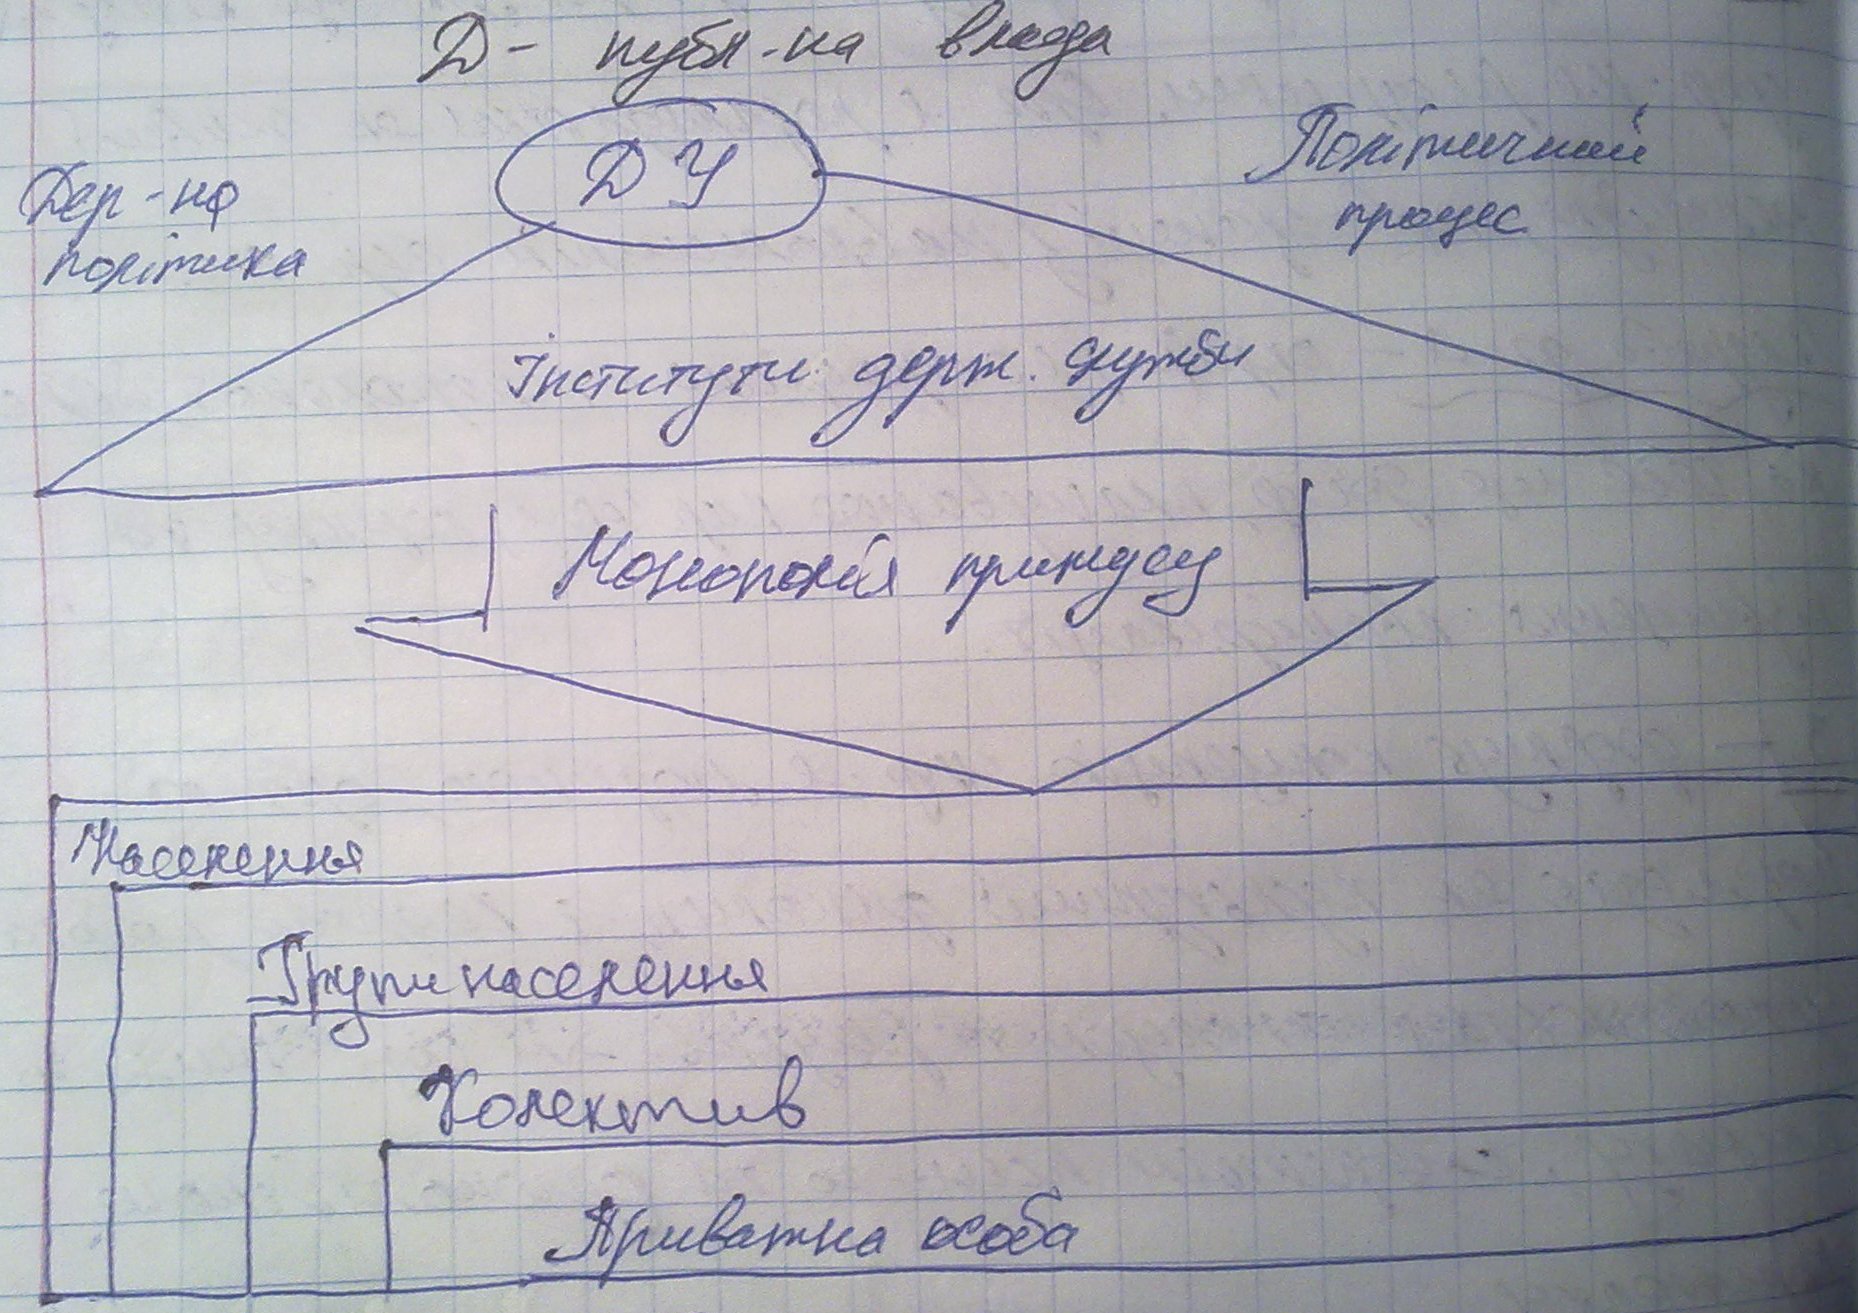 Д - публ-на влада
ДУ
Дер-на
політика
Політичний
процес
Інститути держ. служби
Монополія примусу
Населення
Групи населення
Колектив
Приватна особа